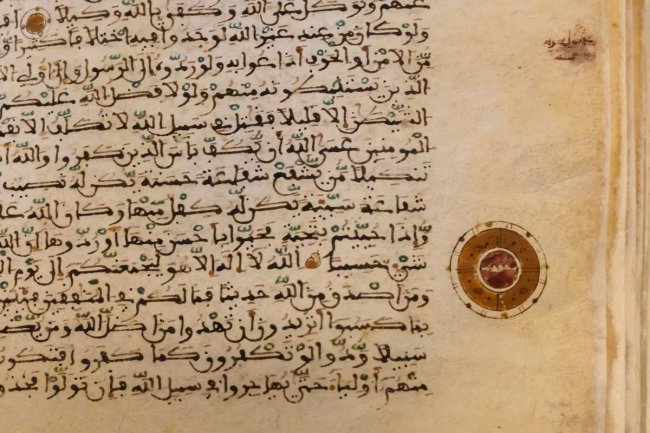 عنهم وتوكل على الله وكفى بالله وكيلا
ولو كان من عند غير الله لوجدوا فيه اختلفا كثيرا
من الامن أو الخوف أذاعوا به ولو ردوه إلى الرسول وإلى أولي
الذين يستنبطونه منهم ولولا فضل الله عليكم
الشيطن إلا قليلا فقتل في سبيل الله لا تكلف إلا
المومنين عسى الله أن يكف بأس الذين كفروا والله
تنكيلا من يشفع شفاعة حسنة يكن له نصيب
شفاعة سيئة يكن له كفل منها وكان الله
وإذا حييتم بتحية فحيوا بأحسن منها أو ردوها إن الله
شيء حسيبا الله لا إله إلا هو ليجمعنكم إلى يوم
ومن أصدق من الله حديثا فما لكم في المنفقين فئتين
بما كسبوا أتريدون أن تهدوا من أضل الله ومن
سبيلا ودوا لو تكفرون كما كفروا
منهم أولياء حتى يهاجروا في سبيل الله فإن تولوا